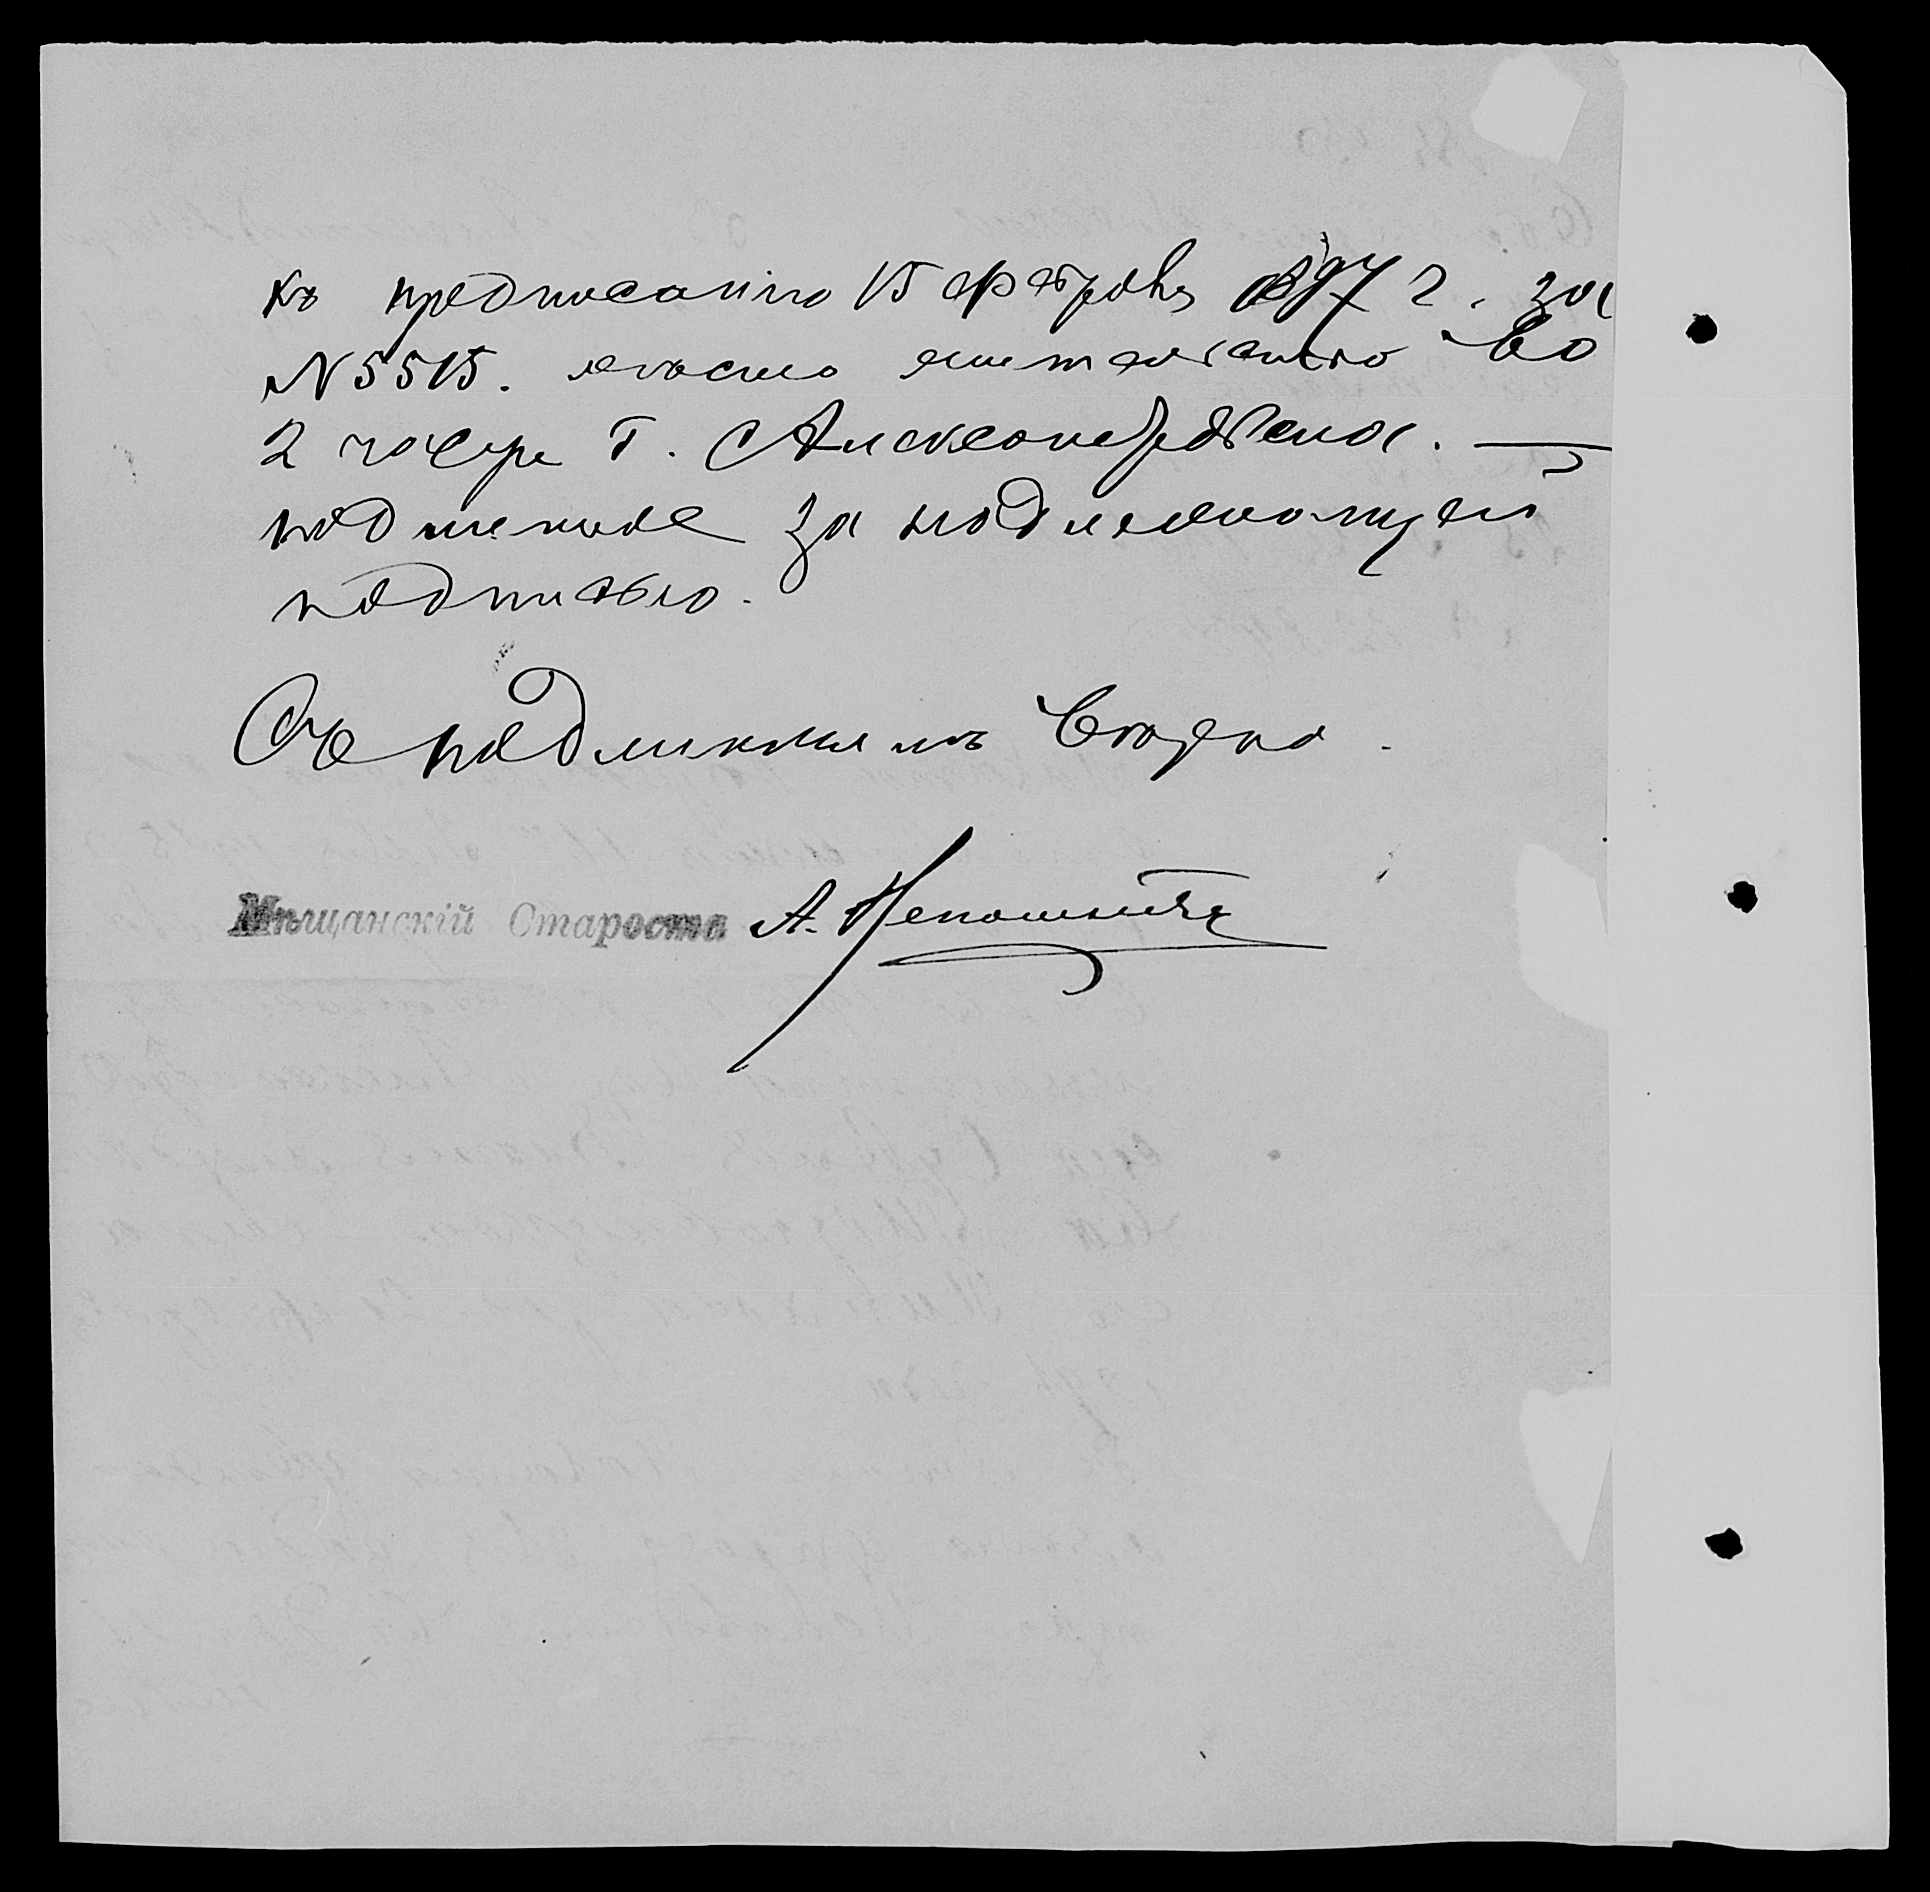 къ предписанію 15 февраля 897 г. за
N 5515. мѣсто жительство во
2 части г. Александровска. —
подлинное за надлежащей
подписью.
Съ подлиннымъ вѣрно.
Мѣщанскій Староста А.